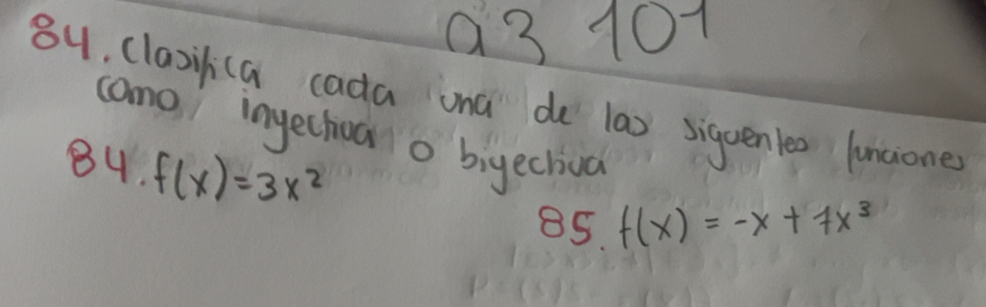 a3 101
84. Clasifica cada una de las siguentes funciones
como inyectiva o biyectiva
84. f(x)=3x²
85. f(x) = -x + 7x³